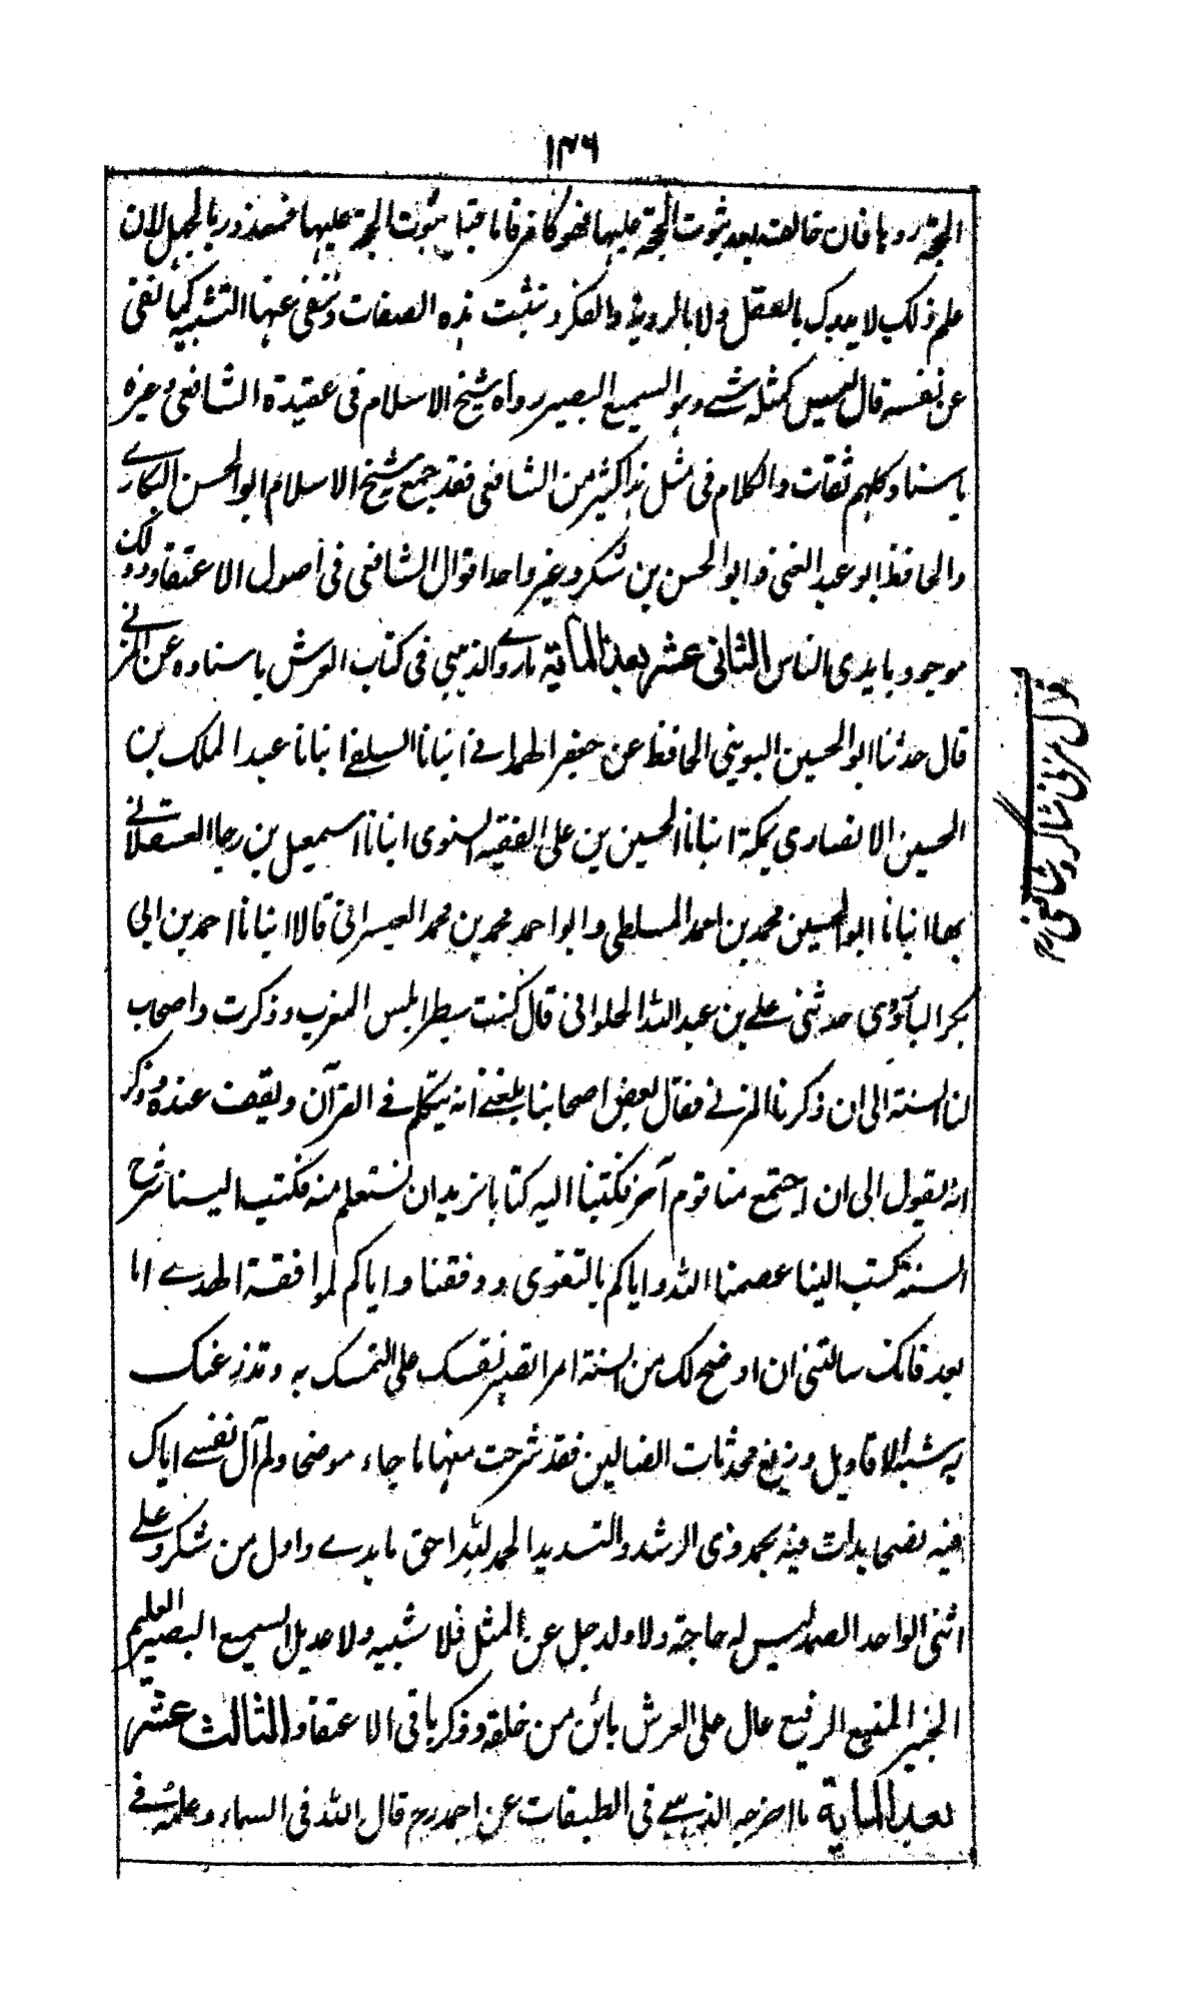 ۱۳۶
الحجة ردها فان خالف بعد ثبوت الحجة عليه فهو كافر فاما قبل ثبوت الحجة عليه فمعذور بالجهل لان
علم ذلك لا يدرك بالعقل ولا بالروية والفكر ونثبت هذه الصفات وننفى عنها التشبيه كما نفى
عن نفسه قال ليس كمثله شے وهو السميع البصير رواه شيخ الاسلام فى عقيدة الشافعى وغيره
باسناد كلهم ثقات والكلام فى مثل هذا كثير من الشافعى فقد جمع شيخ الاسلام ابو الحسن الهكارے
والحافظ ابو عبد الغنى وابو الحسن بن شكر وغير واحد اقوال الشافعى فى أصول الاعتقاد وذلك
موجود بايدى الناس الثانى عشر بعد المائة ماروے الذهبى فى كتاب العرش باسناده عن المزنے
قال حدثنا ابو الحسين اليونينى الحافظ عن جعفر الهمدانے انبانا السلفے انبانا عبد الملك بن
الحسين الانصارى بمكة انبانا الحسين بن على الفقيه النسوى انبانا اسمعيل بن رجا العسقلانے
بها انبانا ابو الحسين محمد بن احمد الملطى وابو احمد محمد بن محمد القيسرانى قالا انبانا احمد بن ابى
بكر اليازورى حدثنى على بن عبد الله الحلوانى قال كنت بطرابلس المغرب وذكرت واصحاب
لنا السنة الى ان ذكرنا المزنے فقال بعض اصحابنا بلغنے انه يتكلم فے القرآن ويقف عنده وذكر
انه يقول الى ان اجتمع منا قوم آخر فكتبنا اليه كتابا نريد ان نستعلم منه فكتب الينا شرح
السنة فكتب الينا عصمنا الله واياكم بالتقوى ووفقنا واياكم لموافقة الهدے اما
بعد فانك سالتنى ان اوضح لك من السنة امرا تصبر نفسك على التمسك به وتذر عنك
به شبه الاقاويل وزيغ محدثات الضالين فقد شرحت منهاجا موضحا ولم آل نفسے اياك
فيه نصحا بدات فيه بحمد ذى الرشد والتسديد الحمد لله احق ما بدے واول من شكر وعلے
اثنى الواحد الصمد ليس له حاجة ولا ولد جل عن المثل فلا شبيه ولا عديل السميع البصير العليم
الخبير المنيع الرفيع عال على العرش بائن من خلقه وذكر باقى الاعتقاد الثالث عشر
بعد المائة ما اخرجه الذهبے فى الطبقات عن احمد رح قال الله فى السماء وعلمه فے
قول مزنى شاگرد شافعى رح